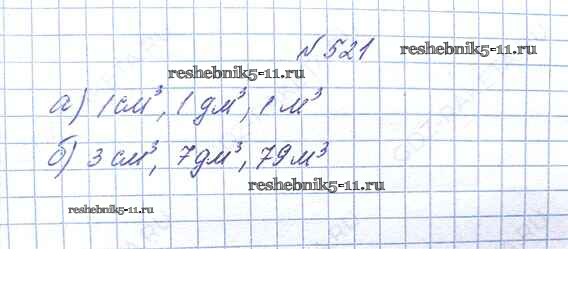 № 521
reshebnik5-11.ru
reshebnik5-11.ru
а) 1 см³, 1 дм³, 1 м³
б) 3 см³, 7 дм³, 79 м³
reshebnik5-11.ru
reshebnik5-11.ru